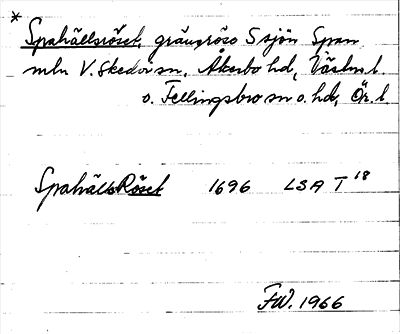 * Spahällsröset, gränsröse S sjön Span
mln V. Skedvi sn, Åkerbo hd, Västm.l.
o. Fellingsbro sn o. hd, Ör. l.
SpahällsRöset 1696 LSA T 18
FW. 1966